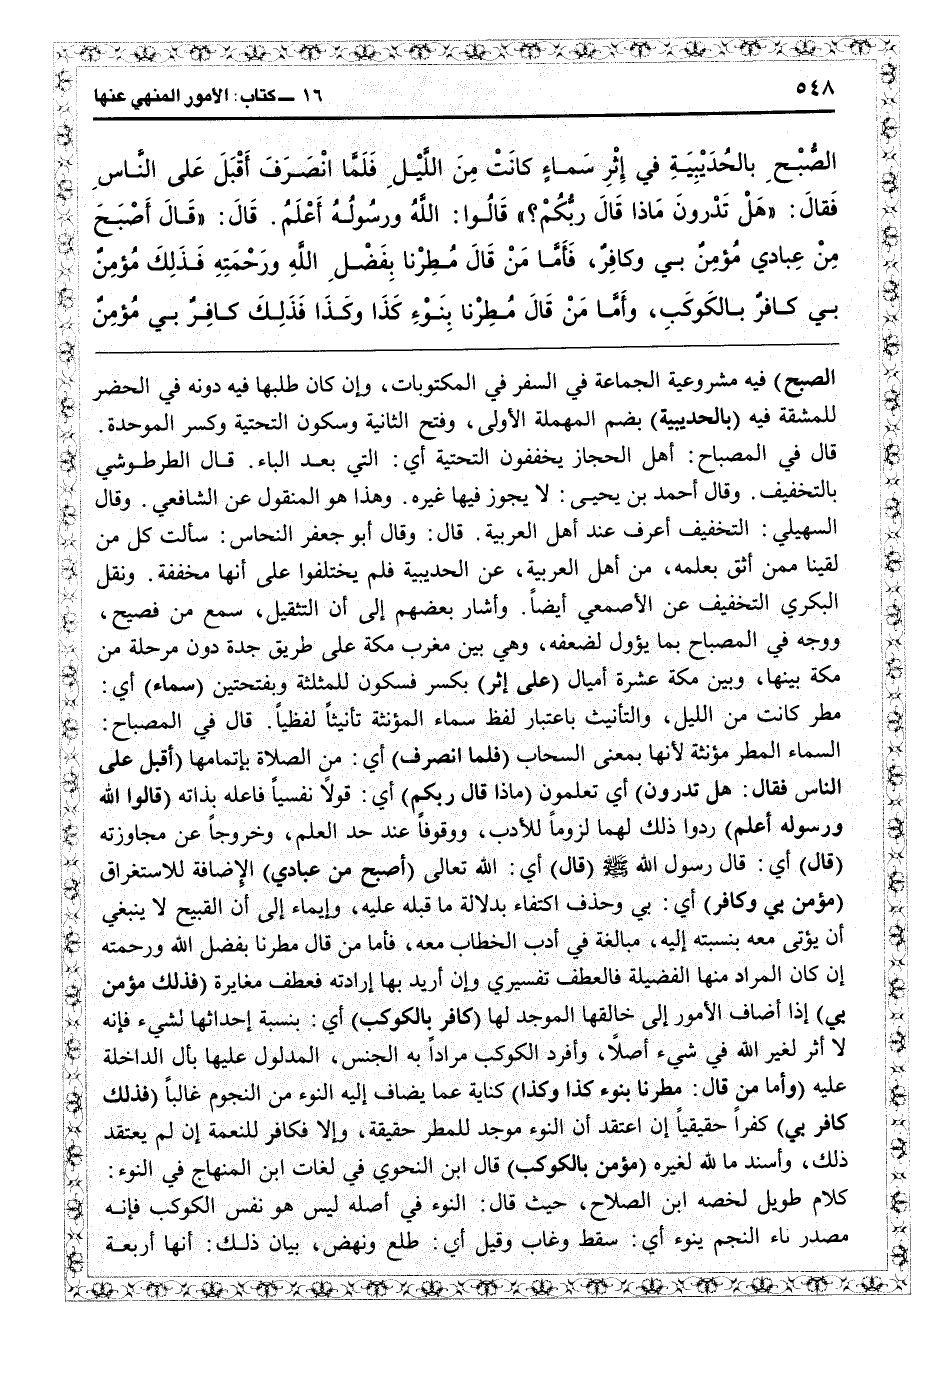 ٥٤٨
١٦ ــ كتاب: الأمور المنهي عنها
الصُّبْحِ بالحُدَيْبِيَةِ في إِثْرِ سَماءٍ كانَتْ مِنَ اللَّيْلِ فَلَمَّا انْصَرَفَ أَقْبَلَ عَلى النَّاسِ
فَقالَ: «هَلْ تَدْرونَ مَاذا قالَ ربُّكُمْ؟» قَالُـوا: اللَّهُ ورسُولُـهُ أَعْلَمُ. قالَ: «قَـالَ أَصْبَحَ
مِنْ عِبادي مُؤمِنٌ بـي وكافِرٌ، فَأَمَّا مَنْ قَالَ مُـطِرْنا بِفَضْلِ اللَّهِ ورَحْمَتِهِ فَـذلِكَ مُؤمِنٌ
بـي كـافرٌ بـالكَوكَبِ، وأَمَّـا مَنْ قَالَ مُـطِرْنا بِنَوْءِ كَذَا وكَـذا فَذلِـكَ كـافِـرٌ بـي مُؤمِنٌ
الصبح) فيه مشروعية الجماعة في السفر في المكتوبات، وإن كان طلبها فيه دونه في الحضر
للمشقة فيه (بالحديبية) بضم المهملة الأولى، وفتح الثانية وسكون التحتية وكسر الموحدة.
قال في المصباح: أهل الحجاز يخففون التحتية أي: التي بعـد الباء. قـال الطرطـوشي
بالتخفيف. وقال أحمد بن يحيـى: لا يجوز فيها غيره. وهذا هو المنقول عن الشافعي. وقال
السهيلي: التخفيف أعرف عند أهل العربية. قال: وقال أبو جعفر النحاس: سألت كل من
لقينا ممن أثق بعلمه، من أهل العربية، عن الحديبية فلم يختلفوا على أنها مخففة. ونقل
البكري التخفيف عن الأصمعي أيضاً. وأشار بعضهم إلى أن التثقيل، سمع من فصيح،
ووجه في المصباح بما يؤول لضعفه، وهي بين مغرب مكة على طريق جدة دون مرحلة من
مكة بينها، وبين مكة عشرة أميال (على إثر) بكسر فسكون للمثلثة وبفتحتين (سماء) أي:
مطر كانت من الليل، والتأنيث باعتبار لفظ سماء المؤنثة تأنيثاً لفظياً. قال في المصباح:
السماء المطر مؤنثة لأنها بمعنى السحاب (فلما انصرف) أي: من الصلاة بإتمامها (أقبل على
الناس فقال: هل تدرون) أي تعلمون (ماذا قال ربكم) أي: قولاً نفسياً فاعله بذاته (قالوا الله
ورسوله أعلم) ردوا ذلك لهما لزوماً للأدب، ووقوفاً عند حد العلم، وخروجاً عن مجاوزته
(قال) أي: قال رسول الله ﷺ (قال) أي: الله تعالى (أصبح من عبادي) الإضافة للاستغراق
(مؤمن بي وكافر) أي: بي وحذف اكتفاء بدلالة ما قبله عليه، وإيماء إلى أن القبيح لا ينبغي
أن يؤتى معه بنسبته إليه، مبالغة في أدب الخطاب معه، فأما من قال مطرنا بفضل الله ورحمته
إن كان المراد منها الفضيلة فالعطف تفسيري وإن أريد بها إرادته فعطف مغايرة (فذلك مؤمن
بي) إذا أضاف الأمور إلى خالقها الموجد لها (كافر بالكوكب) أي: بنسبة إحداثها لشيء فإنه
لا أثر لغير الله في شيء أصلاً، وأفرد الكوكب مراداً به الجنس، المدلول عليها بأل الداخلة
عليه (وأما من قال: مطرنا بنوء كذا وكذا) كناية عما يضاف إليه النوء من النجوم غالباً (فذلك
كافر بي) كفراً حقيقياً إن اعتقد أن النوء موجد للمطر حقيقة، وإلا فكافر للنعمة إن لم يعتقد
ذلك، وأسند ما لله لغيره (مؤمن بالكوكب) قال ابن النحوي في لغات ابن المنهاج في النوء:
كلام طويل لخصه ابن الصلاح، حيث قال: النوء في أصله ليس هو نفس الكوكب فإنـه
مصدر ناء النجم ينوء أي: سقط وغاب وقيل أي: طلع ونهض، بيان ذلـك: أنها أربعـة